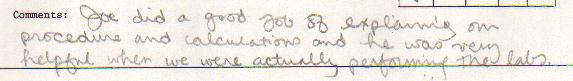 Comments: Joe did a good job of explaining our
procedure and calculations and he was very
helpful when we were actually performing the labs.